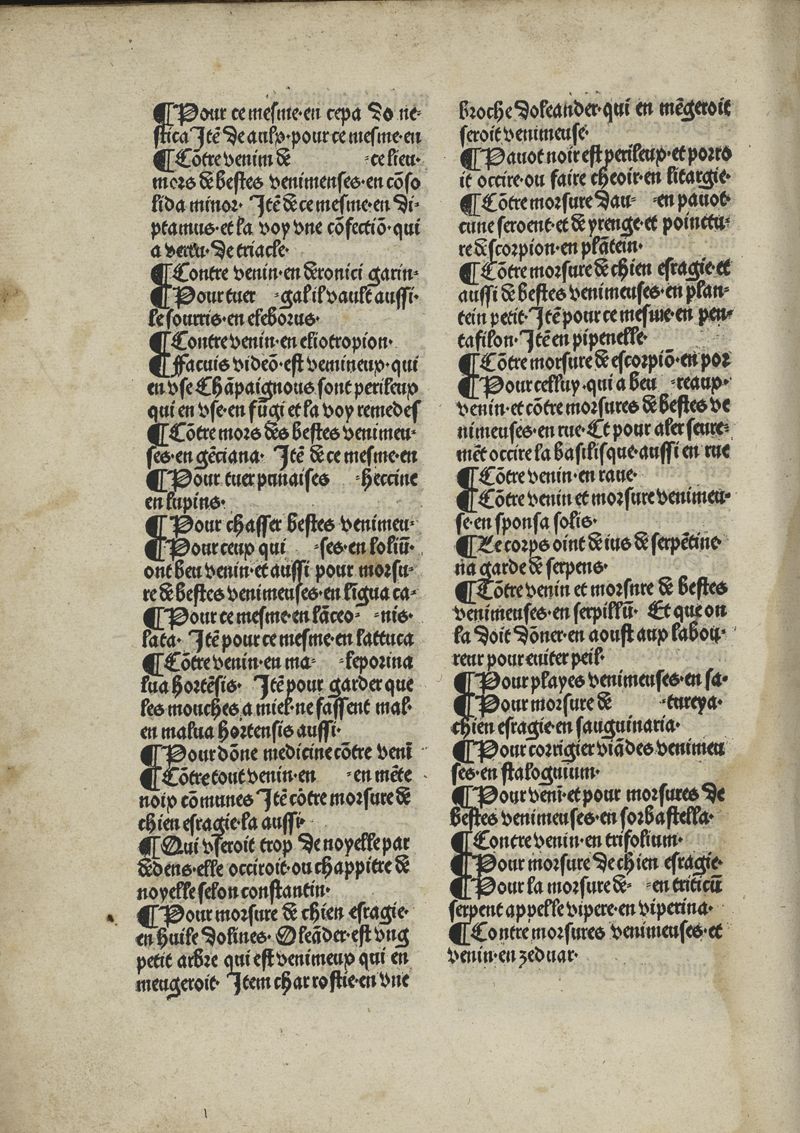 ¶Pour ce mesme·en cepa do ne-
stica Itē de aulx·pour ce mesme·en
¶Cōtre venim de -ce lieu·
mors de bestes venimenses·en cōso
lida minor· Itē de ce mesme·en di-
ptamus·et la voy vne cōfectiō·qui
a vertu·de triacle·
¶Contre venin·en deronici garin-
¶Pour tuer -gal il vault aussi·
le sourris·en eleborus·
¶Contre venin·en eliotropion·
¶ffacuis videō·est vemineux·qui
en vse Chāpaignous sont perileux
qui en vse·en fūgi et la voy remedes
¶Cōtre mors des bestes venimeu-
ses·en gēciana· Itē de ce mesme·en
¶Pour tuer punaises -heccine
en lupins·
¶Pour chasser bestes venimeu-
¶Pour ceux qui -ses·en loliū·
ont beu venin·et aussi pour morsu-
re de bestes venimeuses·en līgua ca-
¶Pour ce mesme·en lāceo- -nis·
lata· Itē pour ce mesme·en lattuca
¶Cōtre venin·en ma- -leporina
lua hortēsis· Itē pour garder que
les mouches a miel·ne fassent mal·
en malua hortensis aussi·
¶Pour dōne medicine cōtre venī
¶Cōtre tout venin·en -en mēte
noix cōmunes Itē cōtre morsure de
chien esragie·la aussi·
¶Qui vseroit trop de noyelle par
dedens·elle occiroit·ou chappitre de
noyelle selon constantin·
¶Pour morsure de chien esragie·
en huile dolines· Oleāder·est vng
petit arbre qui est venimeux qui en
meugeroit· Item char rostie·en vne
broche doleander·qui en mēgeroit
seroit venimeuse·
¶Pauot noir est perileux·et porro
it occire·ou faire cheoir·en litargie·
¶Cōtre morsure dau- -en pauot·
cune seroent·et de yrenge·et poinctu-
re de scorpion·en plātein·
¶Cōtre morsure de chien esragie·et
aussi de bestes venimeuses·en plan-
tein petit·Itē pour ce mesme·en pen-
tafilon·Itē en pipenelle·
¶Cōtre morsure de escorpiō·en por
¶Pour celluy·qui a beu -reaux·
venin·et cōtre morsures de bestes ve
nimeuses·en rue·Et pour aler seure-
mēt occire la basilisque·aussi en rue
¶Cōtre venin·en raue·
¶Cōtre venin et morsure venimeu-
se·en sponsa solis·
¶Le corps oint de ius de serpētine·
na garde de serpens·
¶Cōtre venin et morsnre de bestes
venimeuses·en serpillū· Et que on
la doit dōner·en aoust aux labou-
reur pour euiter peil·
¶Pour playes venimeuses·en sa-
¶Pour morsure de -tureya·
chien esragie·en sauguinaria·
¶Pour corrigier viādes venimeu
ses·en staloguium·
¶Pour venī·et pour morsures de
bestes venimeuses·en sorbastella·
¶Contre venin·en trifolium·
¶Pour morsure de chien esragie·
¶Pour la morsure de- -en triticū
serpent appelle vipere·en viperina·
¶Contre morsures venimeuses·et
venin·en zeduar·